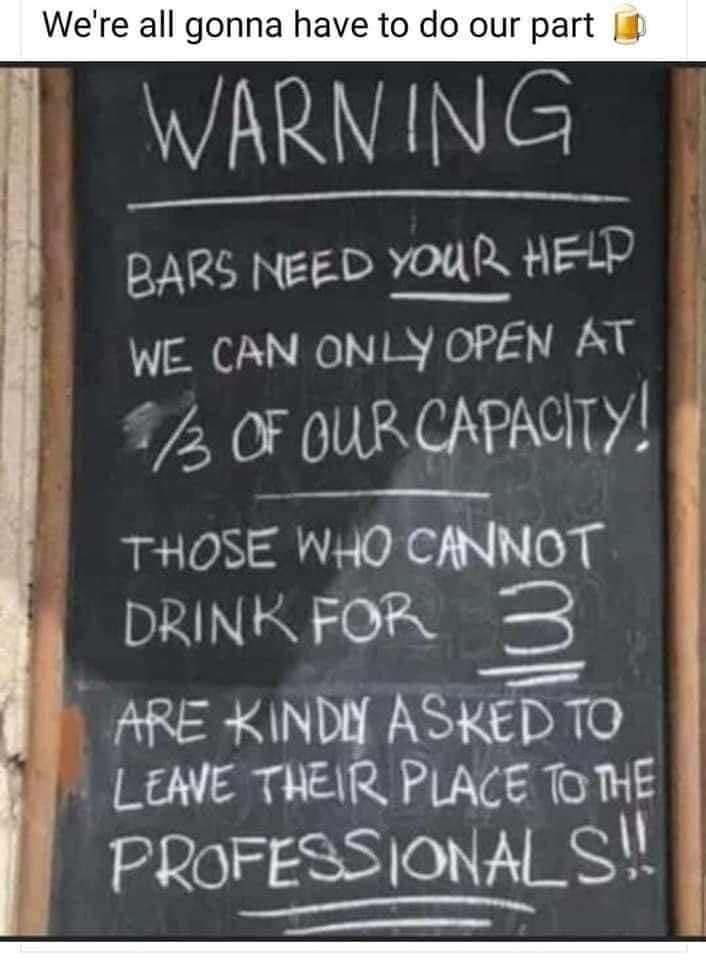 We're all gonna have to do our part 🍺
WARNING
BARS NEED YOUR HELP
WE CAN ONLY OPEN AT
1/3 OF OUR CAPACITY!
THOSE WHO CANNOT
DRINK FOR 3
ARE KINDLY ASKED TO
LEAVE THEIR PLACE TO THE
PROFESSIONALS!!